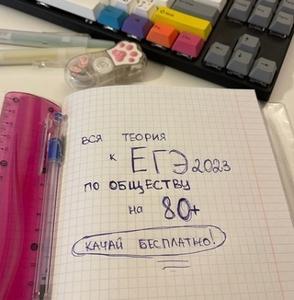 ВСЯ ТЕОРИЯ
К ЕГЭ 2023
ПО ОБЩЕСТВУ
на 80+
КАЧАЙ БЕСПЛАТНО!